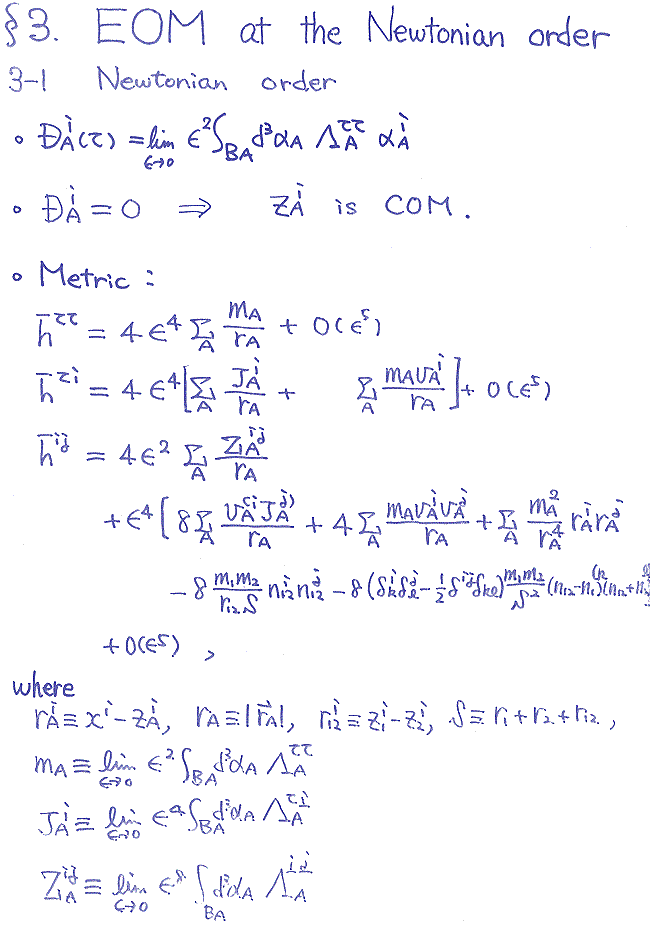 §3. EOM at the Newtonian order
3-1 Newtonian order
∘ Đ_A^i(τ) = lim_{ϵ→0} ϵ² ∫_{B_A} d³α_A Λ_A^{ττ} α_A^i
∘ Đ_A^i = 0 ⇒ z_A^i is COM.
∘ Metric :
h̄^{ττ} = 4ϵ⁴ Σ_A m_A/r_A + O(ϵ⁵)
h̄^{τi} = 4ϵ⁴ [ Σ_A J_A^i/r_A + Σ_A m_A v_A^i/r_A ] + O(ϵ⁵)
h̄^{ij} = 4ϵ² Σ_A Z_A^{ij}/r_A
+ϵ⁴ [ 8Σ_A v_A^{(i} J_A^{j)}/r_A + 4Σ_A m_A v_A^i v_A^j/r_A + Σ_A m_A²/r_A⁴ r_A^i r_A^j
− 8 m₁m₂/(r₁₂ S) n₁₂^i n₁₂^j − 8 (δ_k^i δ_l^j − ½ δ^{ij} δ_{kl}) m₁m₂/S² (n₁₂−n₁)^{(k} (n₁₂+n₂)^{l)}]
+O(ϵ⁵) ,
where
r_A^i ≡ x^i − z_A^i, r_A ≡ |r⃗_A|, r₁₂^i ≡ z₁^i − z₂^i, S ≡ r₁ + r₂ + r₁₂ ,
m_A ≡ lim_{ϵ→0} ϵ² ∫_{B_A} d³α_A Λ_A^{ττ}
J_A^i ≡ lim_{ϵ→0} ϵ⁴ ∫_{B_A} d³α_A Λ_A^{τi}
Z_A^{ij} ≡ lim_{ϵ→0} ϵ⁸ ∫_{B_A} d³α_A Λ_A^{ij}